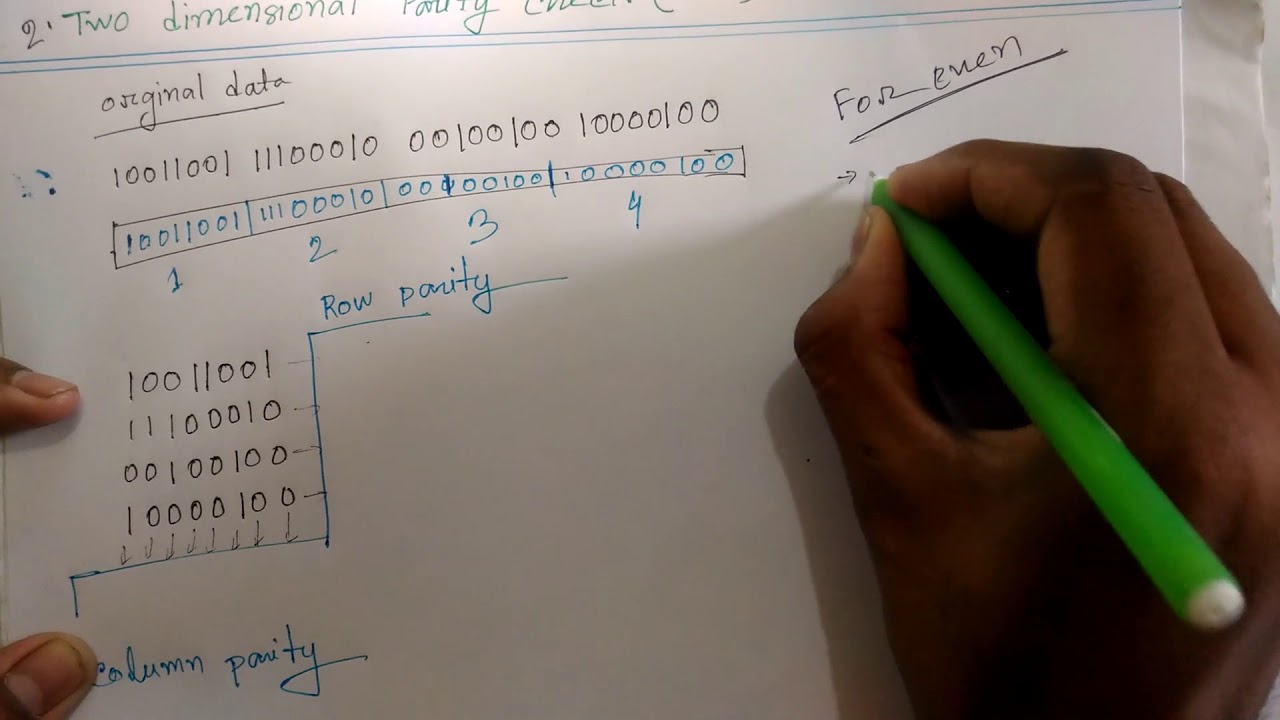 2. Two dimensional Parity Check (
orginal data
For even
10011001 11100010 00100100 10000100
10011001 11100010 00100100 10000100
→
1 2 3 4
Row parity
10011001
11100010
00100100
10000100
column parity